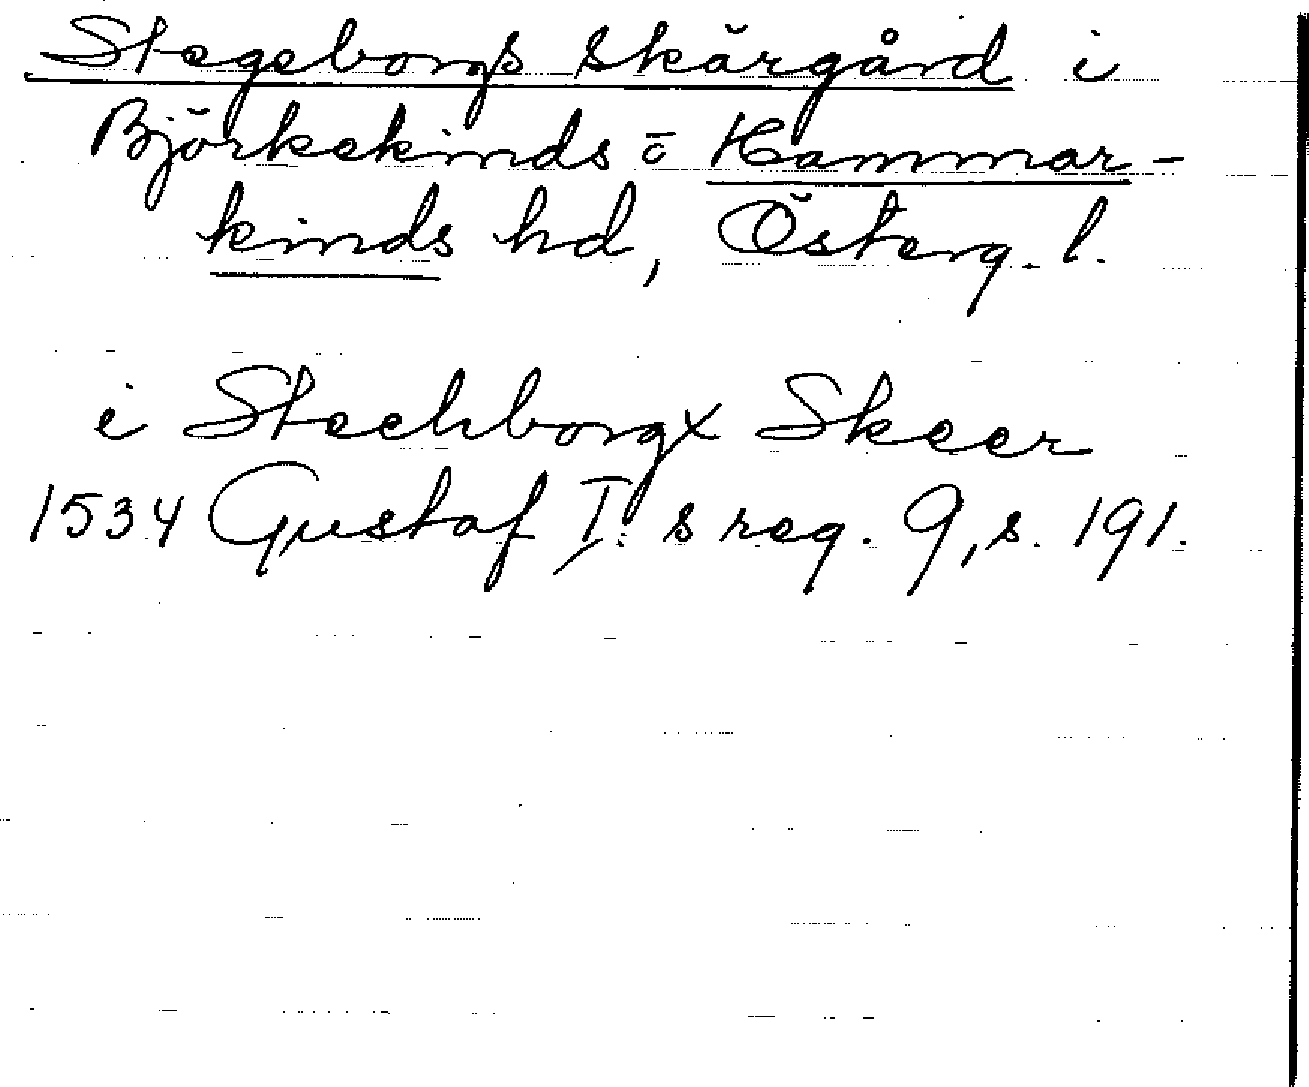 Stegeborgs skärgård i
Björkekinds o Hammar-
kinds hd, Österg. l.
i Steckborgx Skeer
1534 Gustaf I:s reg. 9, s. 191.